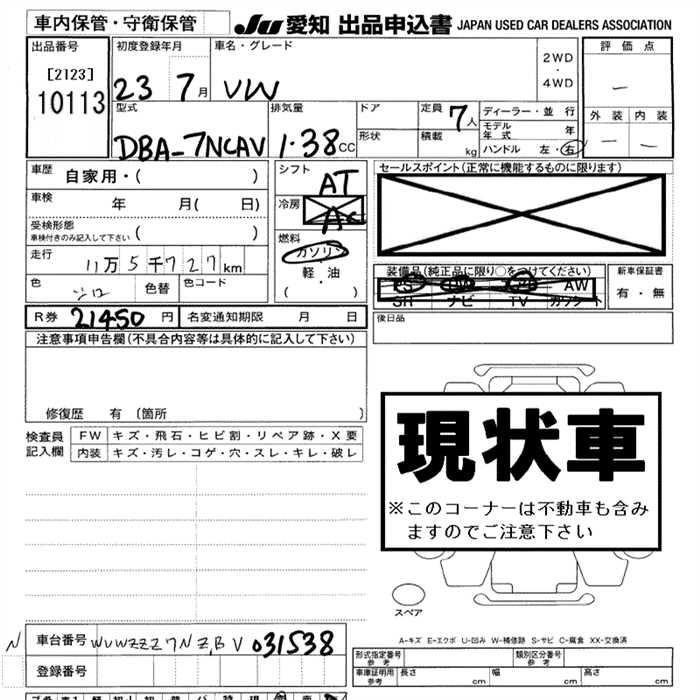 車内保管・守衛保管
JU 愛知 出品申込書 JAPAN USED CAR DEALERS ASSOCIATION
出品番号
[2123]
10113
初度登録年月
23 7月
車名・グレード
VW
2WD
・
4WD
評価点
—
外装 内装
— —
型式
DBA-7NCAV
排気量
1.38CC
ドア
形状
定員 7人
積載 kg
ディーラー・並行
モデル年式 年
ハンドル 左・右
車歴
自家用・( )
車検 年 月( 日)
受検形態
車検付きのみ記入して下さい ( )
走行 11万5千727km
色 シロ 色替 色コード
シフト
AT
冷房
AC
燃料
ガソリン
・
軽・油
( )
セールスポイント(正常に機能するものに限ります)
装備品(純正品に限り○をつけてください)
PS PW AW
SR ナビ TV カセット
新車保証書
有・無
R券 21450 円 名変通知期限 月 日
後日品
注意事項申告欄(不具合内容等は具体的に記入して下さい)
修復歴 有 〔箇所 〕
検査員
記入欄
FW キズ・飛石・ヒビ割・リペア跡・X要
内装 キズ・汚レ・コゲ・穴・スレ・キレ・破レ
現状車
※このコーナーは不動車も含み
ますのでご注意下さい
スペア
A-キズ E-エクボ U-凹み W-補修跡 S-サビ C-腐食 XX-交換済
N
車台番号 WVWZZZ7NZBV031538
登録番号
形式指定番号
参考
類別区分番号
参考
車庫証明用
参考
長さ cm 幅 cm 高さ cm